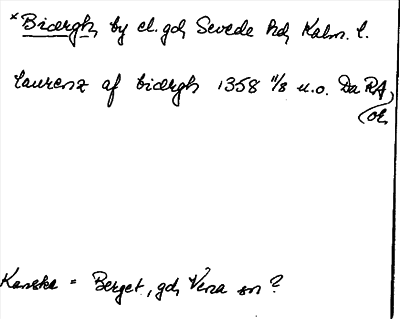 *Biærgh, by el. gd, Sevede hd, Kalm. l.
laurenz af biærgh 1358 11/8 u.o. Da RA,
or.
Kanske = Berget, gd, Vena sn?